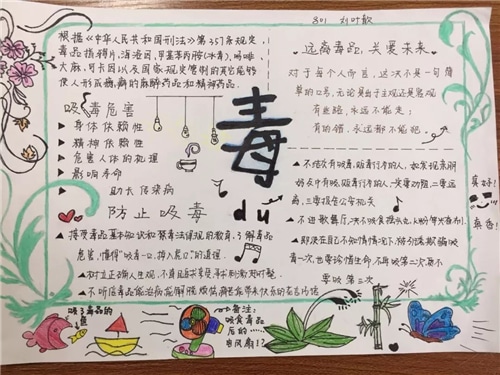 801 刘叶歆
根据《中华人民共和国刑法》第357条规定，
毒品指鸦片、海洛因、甲基苯丙胺(冰毒)、吗啡、
大麻、可卡因以及国家规定管制的其它能够
使人形成瘾癖的麻醉药品和精神药品。
吸毒危害
身体依赖性
精神依赖性
危害人体的机理
影响寿命
助长传染病
防止吸毒
接受毒品基本知识和禁毒法律法规的教育，了解毒品
危害，懂得"吸毒一口，掉入虎口"的道理
树立正确人生观，不盲目追求享受，寻求刺激，赶时髦。
不听信毒品能治病，
毒
du
远离毒品，关爱未来
对于每个人而言，这决不是一句简
单的口号，无论是出于主观还是客观
有些路，永远不能走；
有的错，永远都不能犯。
不结交有吸毒、贩毒行为的人，如发现亲朋
好友中有吸、贩毒行为的人，一定要劝阻，二要远
离，三要报告公安机关
不进歌舞厅，决不吸食摇头丸、
即使在自己不知情情况下，被引诱欺骗吸
毒一次，也要珍惜生命，不再吸第二次，更不
要吸第三次
真好!
真香!
吸了毒品的
鱼
备注:
吸食毒品
后的
电风扇!?